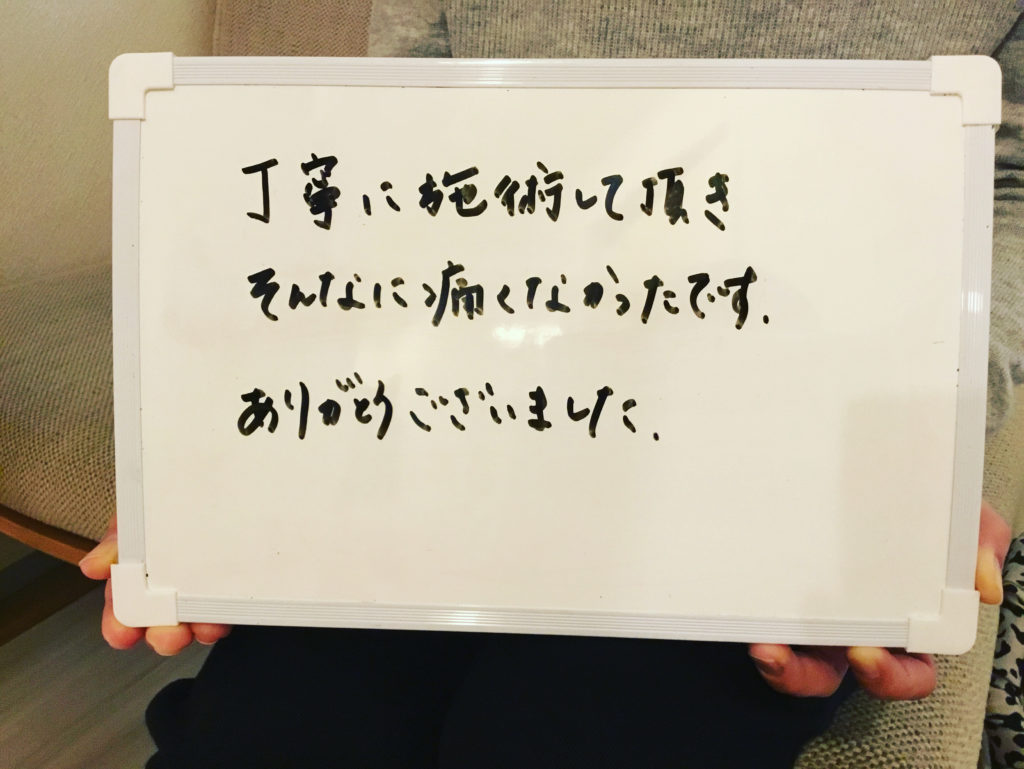 丁寧に施術して頂き
そんなに痛くなかったです.
ありがとうございました.